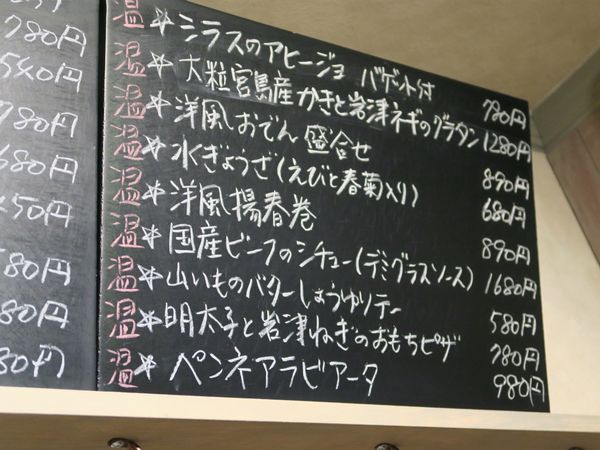 780円
540円
780円
680円
450円
580円
温☆シラスのアヒージョ バゲット付 780円
温☆大粒宮島産かきと岩津ネギのグラタン 1280円
温☆洋風おでん 盛合せ 890円
温☆水ぎょうざ(えびと春菊入り) 680円
温☆洋風揚春巻 890円
温☆国産ビーフのシチュー(デミグラスソース) 1680円
温☆山いものバターしょうゆソテー 580円
温☆明太子と岩津ねぎのおもちピザ 780円
温☆ペンネアラビアータ 980円